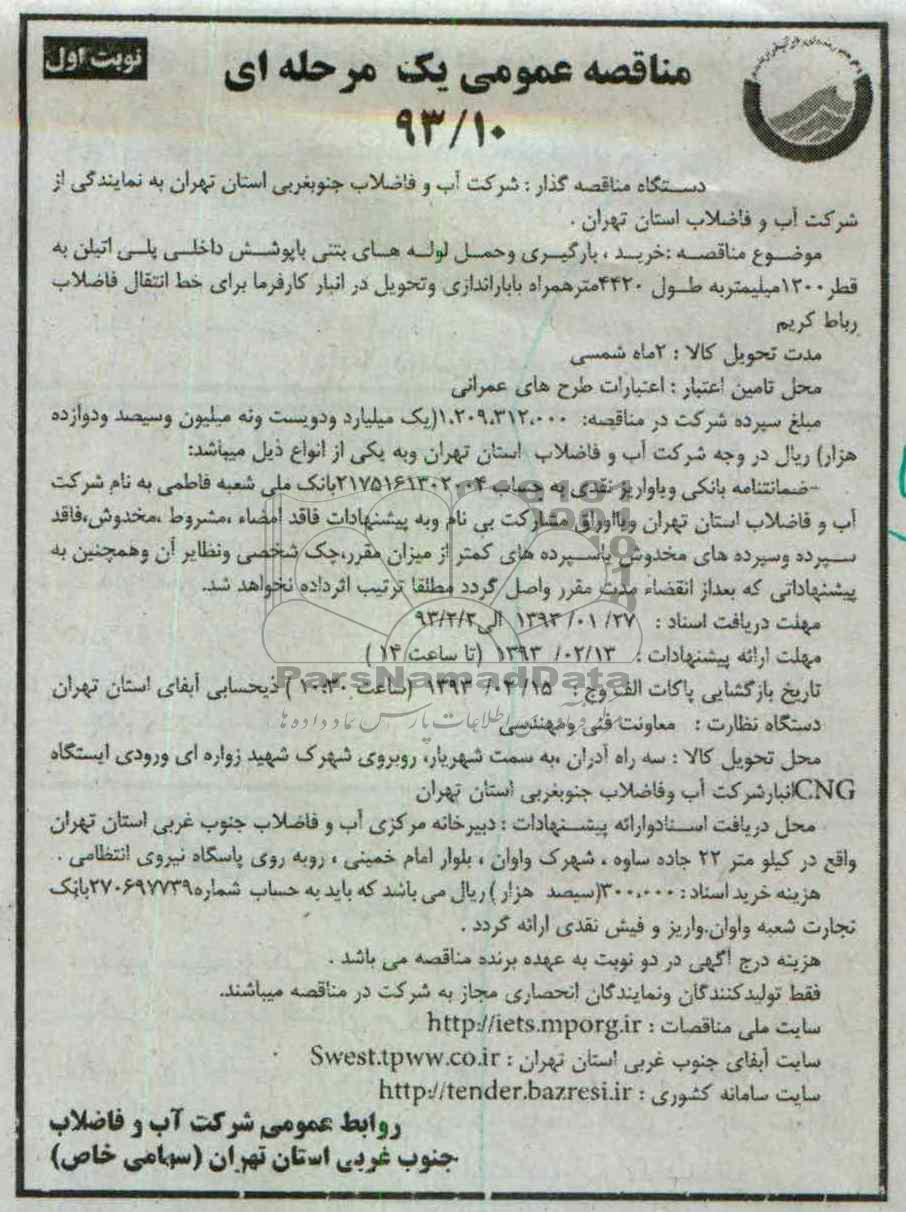 نوبت اول
مناقصه عمومی یک مرحله ای
۹۳/۱۰
دستگاه مناقصه گذار : شرکت آب و فاضلاب جنوبغربی استان تهران به نمایندگی از
شرکت آب و فاضلاب استان تهران .
موضوع مناقصه :خرید ، بارگیری وحمل لوله های بتنی باپوشش داخلی پلی اتیلن به
قطر ۱۲۰۰میلیمتربه طول ۴۴۲۰مترهمراه باباراندازی وتحویل در انبار کارفرما برای خط انتقال فاضلاب
رباط کریم
مدت تحویل کالا : ۲ماه شمسی
محل تامین اعتبار : اعتبارات طرح های عمرانی
مبلغ سپرده شرکت در مناقصه: ۱.۲۰۹.۳۱۲.۰۰۰(یک میلیارد ودویست ونه میلیون وسیصد ودوازده
هزار) ریال در وجه شرکت آب و فاضلاب استان تهران وبه یکی از انواع ذیل میباشد:
-ضمانتنامه بانکی ویاواریز نقدی به حساب ۲۱۷۵۱۶۱۳۰۲۰۰۴بانک ملی شعبه فاطمی به نام شرکت
آب و فاضلاب استان تهران ویااوراق مشارکت بی نام وبه پیشنهادات فاقد امضاء ،مشروط ،مخدوش،فاقد
سپرده وسپرده های مخدوش یاسپرده های کمتر از میزان مقرر،چک شخصی ونظایر آن وهمچنین به
پیشنهاداتی که بعداز انقضاء مدت مقرر واصل گردد مطلقا ترتیب اثرداده نخواهد شد.
مهلت دریافت اسناد : ۲۷/ ۰۱/ ۱۳۹۳ الی ۹۳/۲/۲
مهلت ارائه پیشنهادات : ۰۲/۱۳/ ۱۳۹۳ (تا ساعت ۱۴ )
تاریخ بازگشایی پاکات الف وج : ۱۳۹۳ (ساعت ۱۰:۳۰ ) ذیحسابی آبفای استان تهران
دستگاه نظارت : معاونت فنی ومهندسی
محل تحویل کالا : سه راه آدران ،به سمت شهریار، روبروی شهرک شهید زواره ای ورودی ایستگاه
CNGانبارشرکت آب وفاضلاب جنوبغربی استان تهران
محل دریافت اسنادوارائه پیشنهادات : دبیرخانه مرکزی آب و فاضلاب جنوب غربی استان تهران
واقع در کیلو متر ۲۲ جاده ساوه ، شهرک واوان ، بلوار امام خمینی ، روبه روی پاسگاه نیروی انتظامی .
هزینه خرید اسناد : ۳۰۰.۰۰۰(سیصد هزار ) ریال می باشد که باید به حساب شماره۲۷۰۶۹۷۷۳۹بانک
تجارت شعبه واوان.واریز و فیش نقدی ارائه گردد .
هزینه درج آگهی در دو نوبت به عهده برنده مناقصه می باشد .
فقط تولیدکنندگان ونمایندگان انحصاری مجاز به شرکت در مناقصه میباشند.
سایت ملی مناقصات : http://iets.mporg.ir
سایت آبفای جنوب غربی استان تهران : Swest.tpww.co.ir
سایت سامانه کشوری : http://tender.bazresi.ir
روابط عمومی شرکت آب و فاضلاب
جنوب غربی استان تهران (سهامی خاص)
ParsNamadData